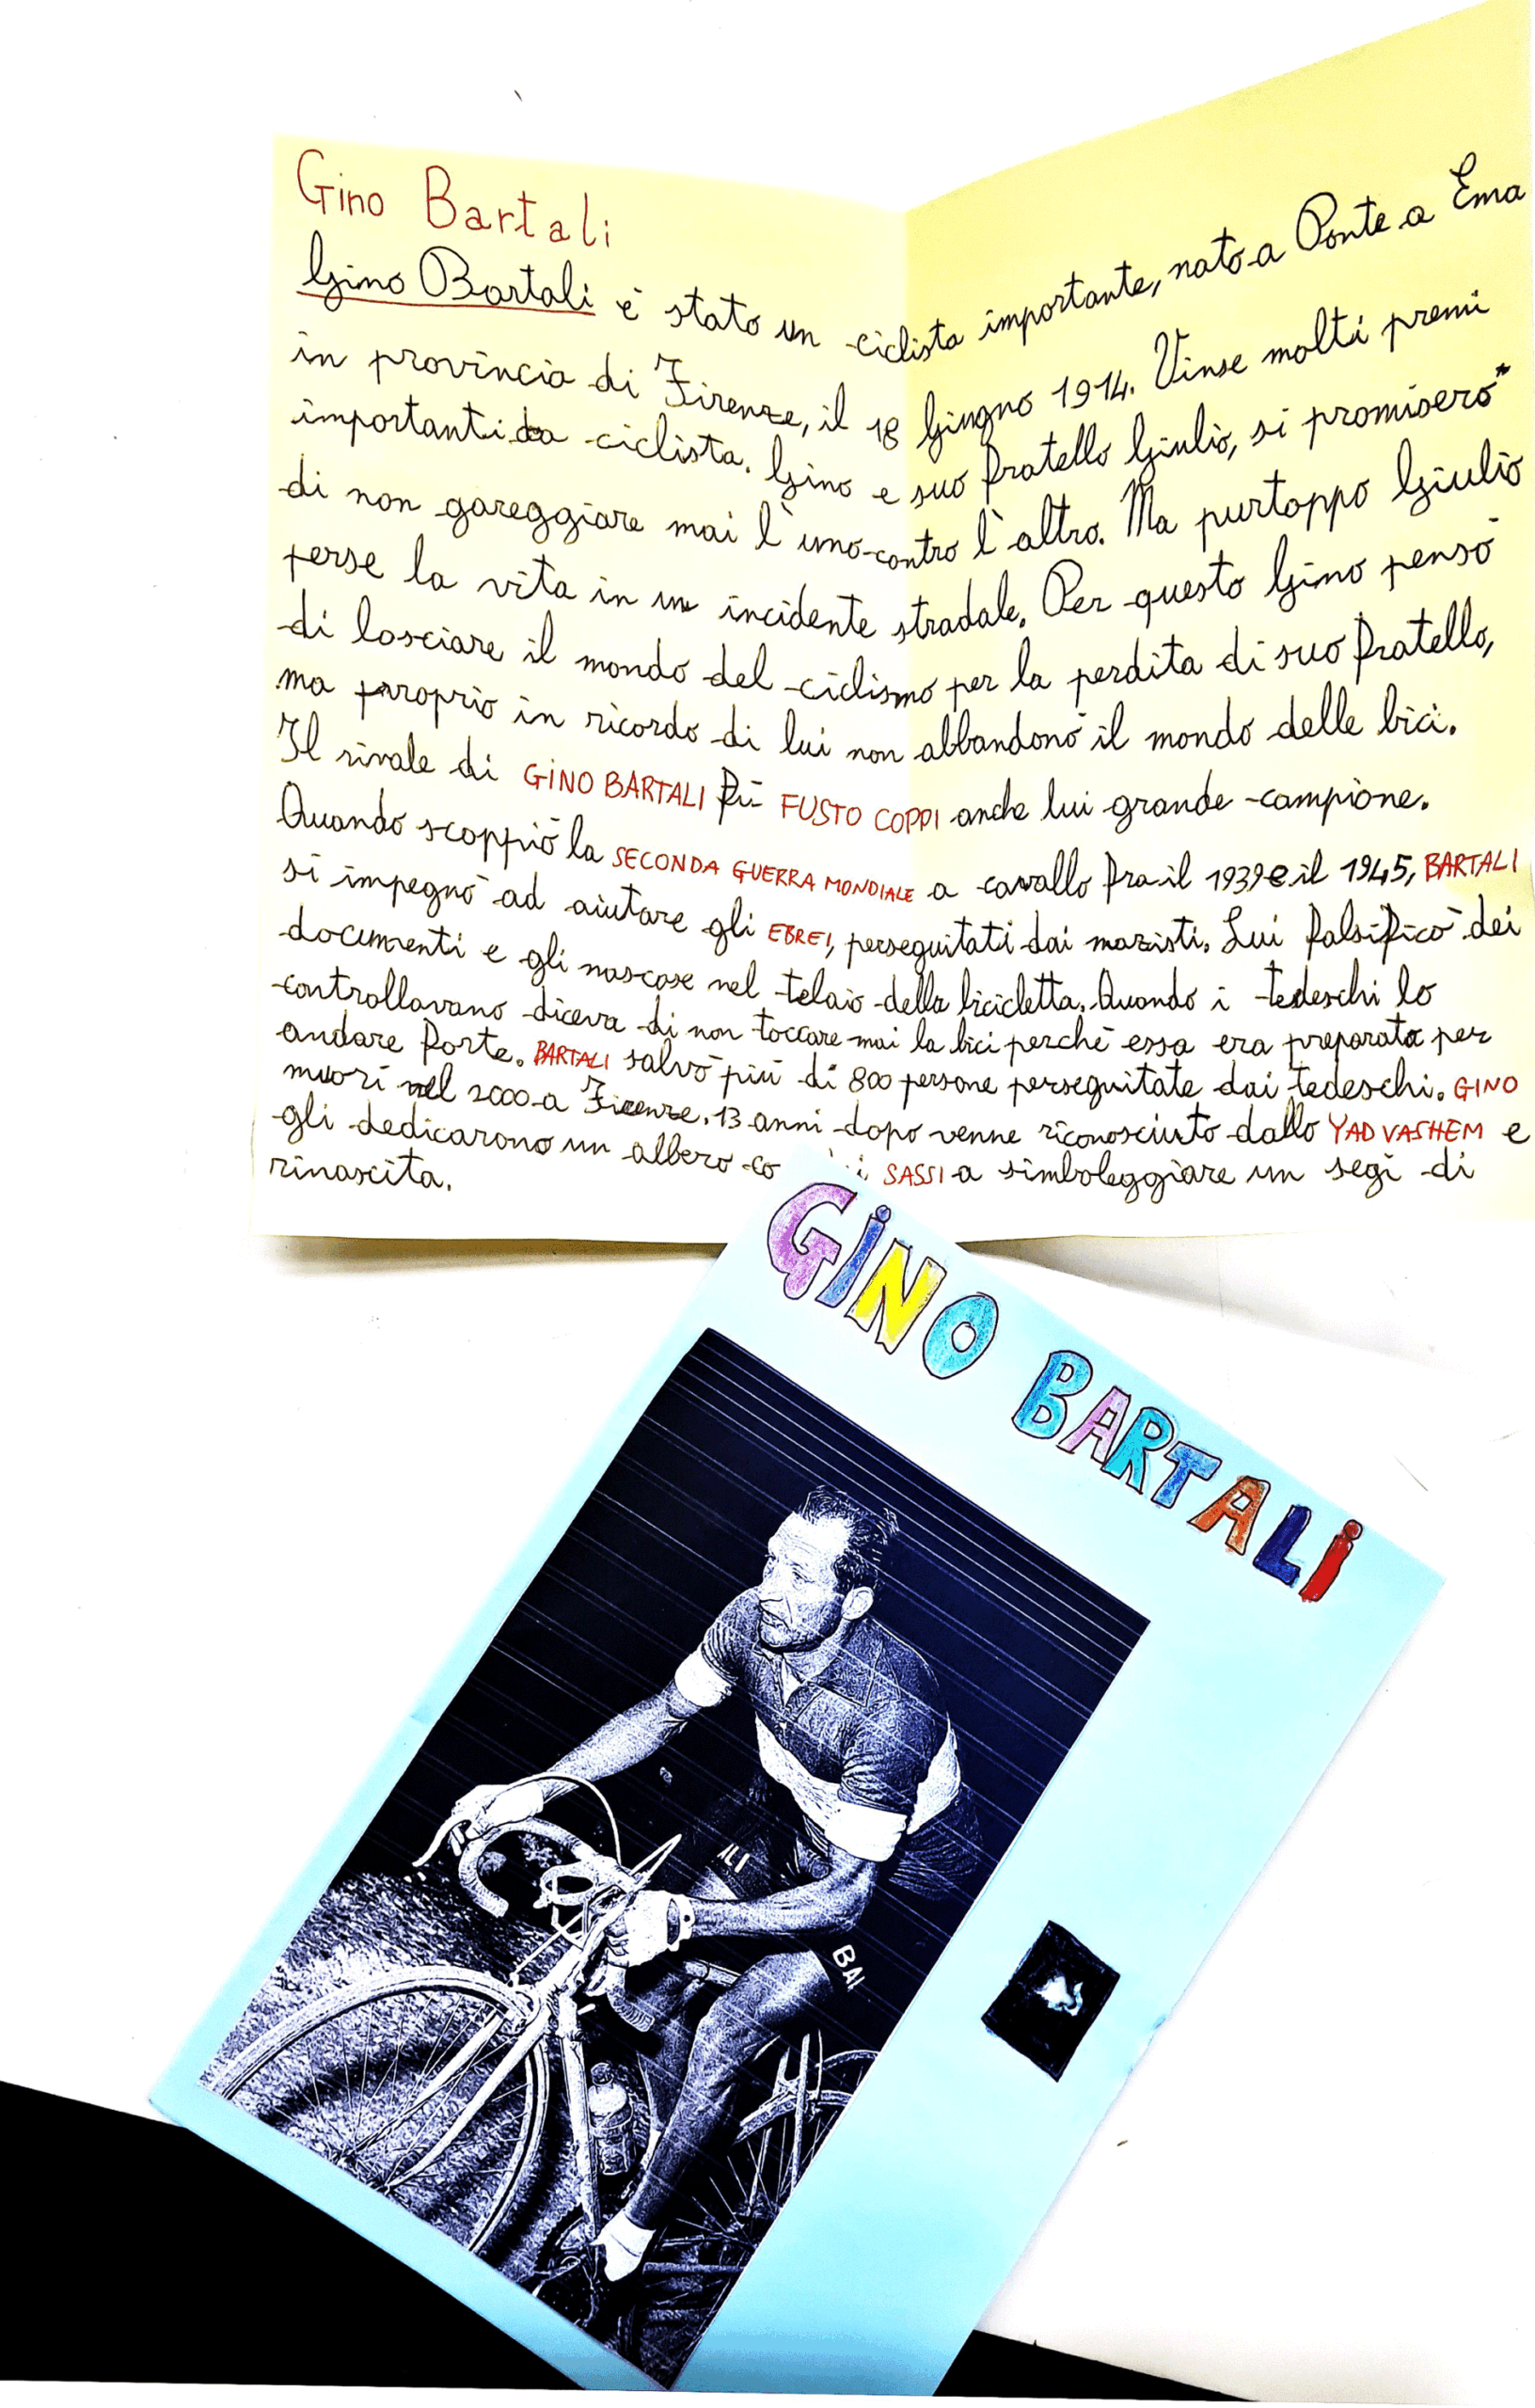 Gino Bartali
Gino Bartali è stato un ciclista importante, nato a Ponte a Ema
in provincia di Firenze, il 18 Giugno 1914. Vinse molti premi
importanti da ciclista. Gino e suo fratello Giulio, si promisero
di non gareggiare mai l'uno contro l'altro. Ma purtoppo Giulio
perse la vita in un incidente stradale. Per questo Gino pensò
di lasciare il mondo del ciclismo per la perdita di suo fratello,
ma proprio in ricordo di lui non abbandonò il mondo delle bici.
Il rivale di GINO BARTALI fù FUSTO COPPI anche lui grande campione.
Quando scoppiò la SECONDA GUERRA MONDIALE a cavallo fra il 1939 e il 1945, BARTALI
si impegnò ad aiutare gli EBREI, perseguitati dai nazisti. Lui falsificò dei
documenti e gli nascose nel telaio della bicicletta. Quando i tedeschi lo
controllavano diceva di non toccare mai la bici perchè essa era preparata per
andare forte. BARTALI salvò più di 800 persone perseguitate dai tedeschi. GINO
muorì nel 2000 a Firenze. 13 anni dopo venne riconosciuto dallo YAD VASHEM e
gli dedicarono un albero co SASSI a simboleggiare un segi di
rinascita.
GINO BARTALI
ALI
BAI